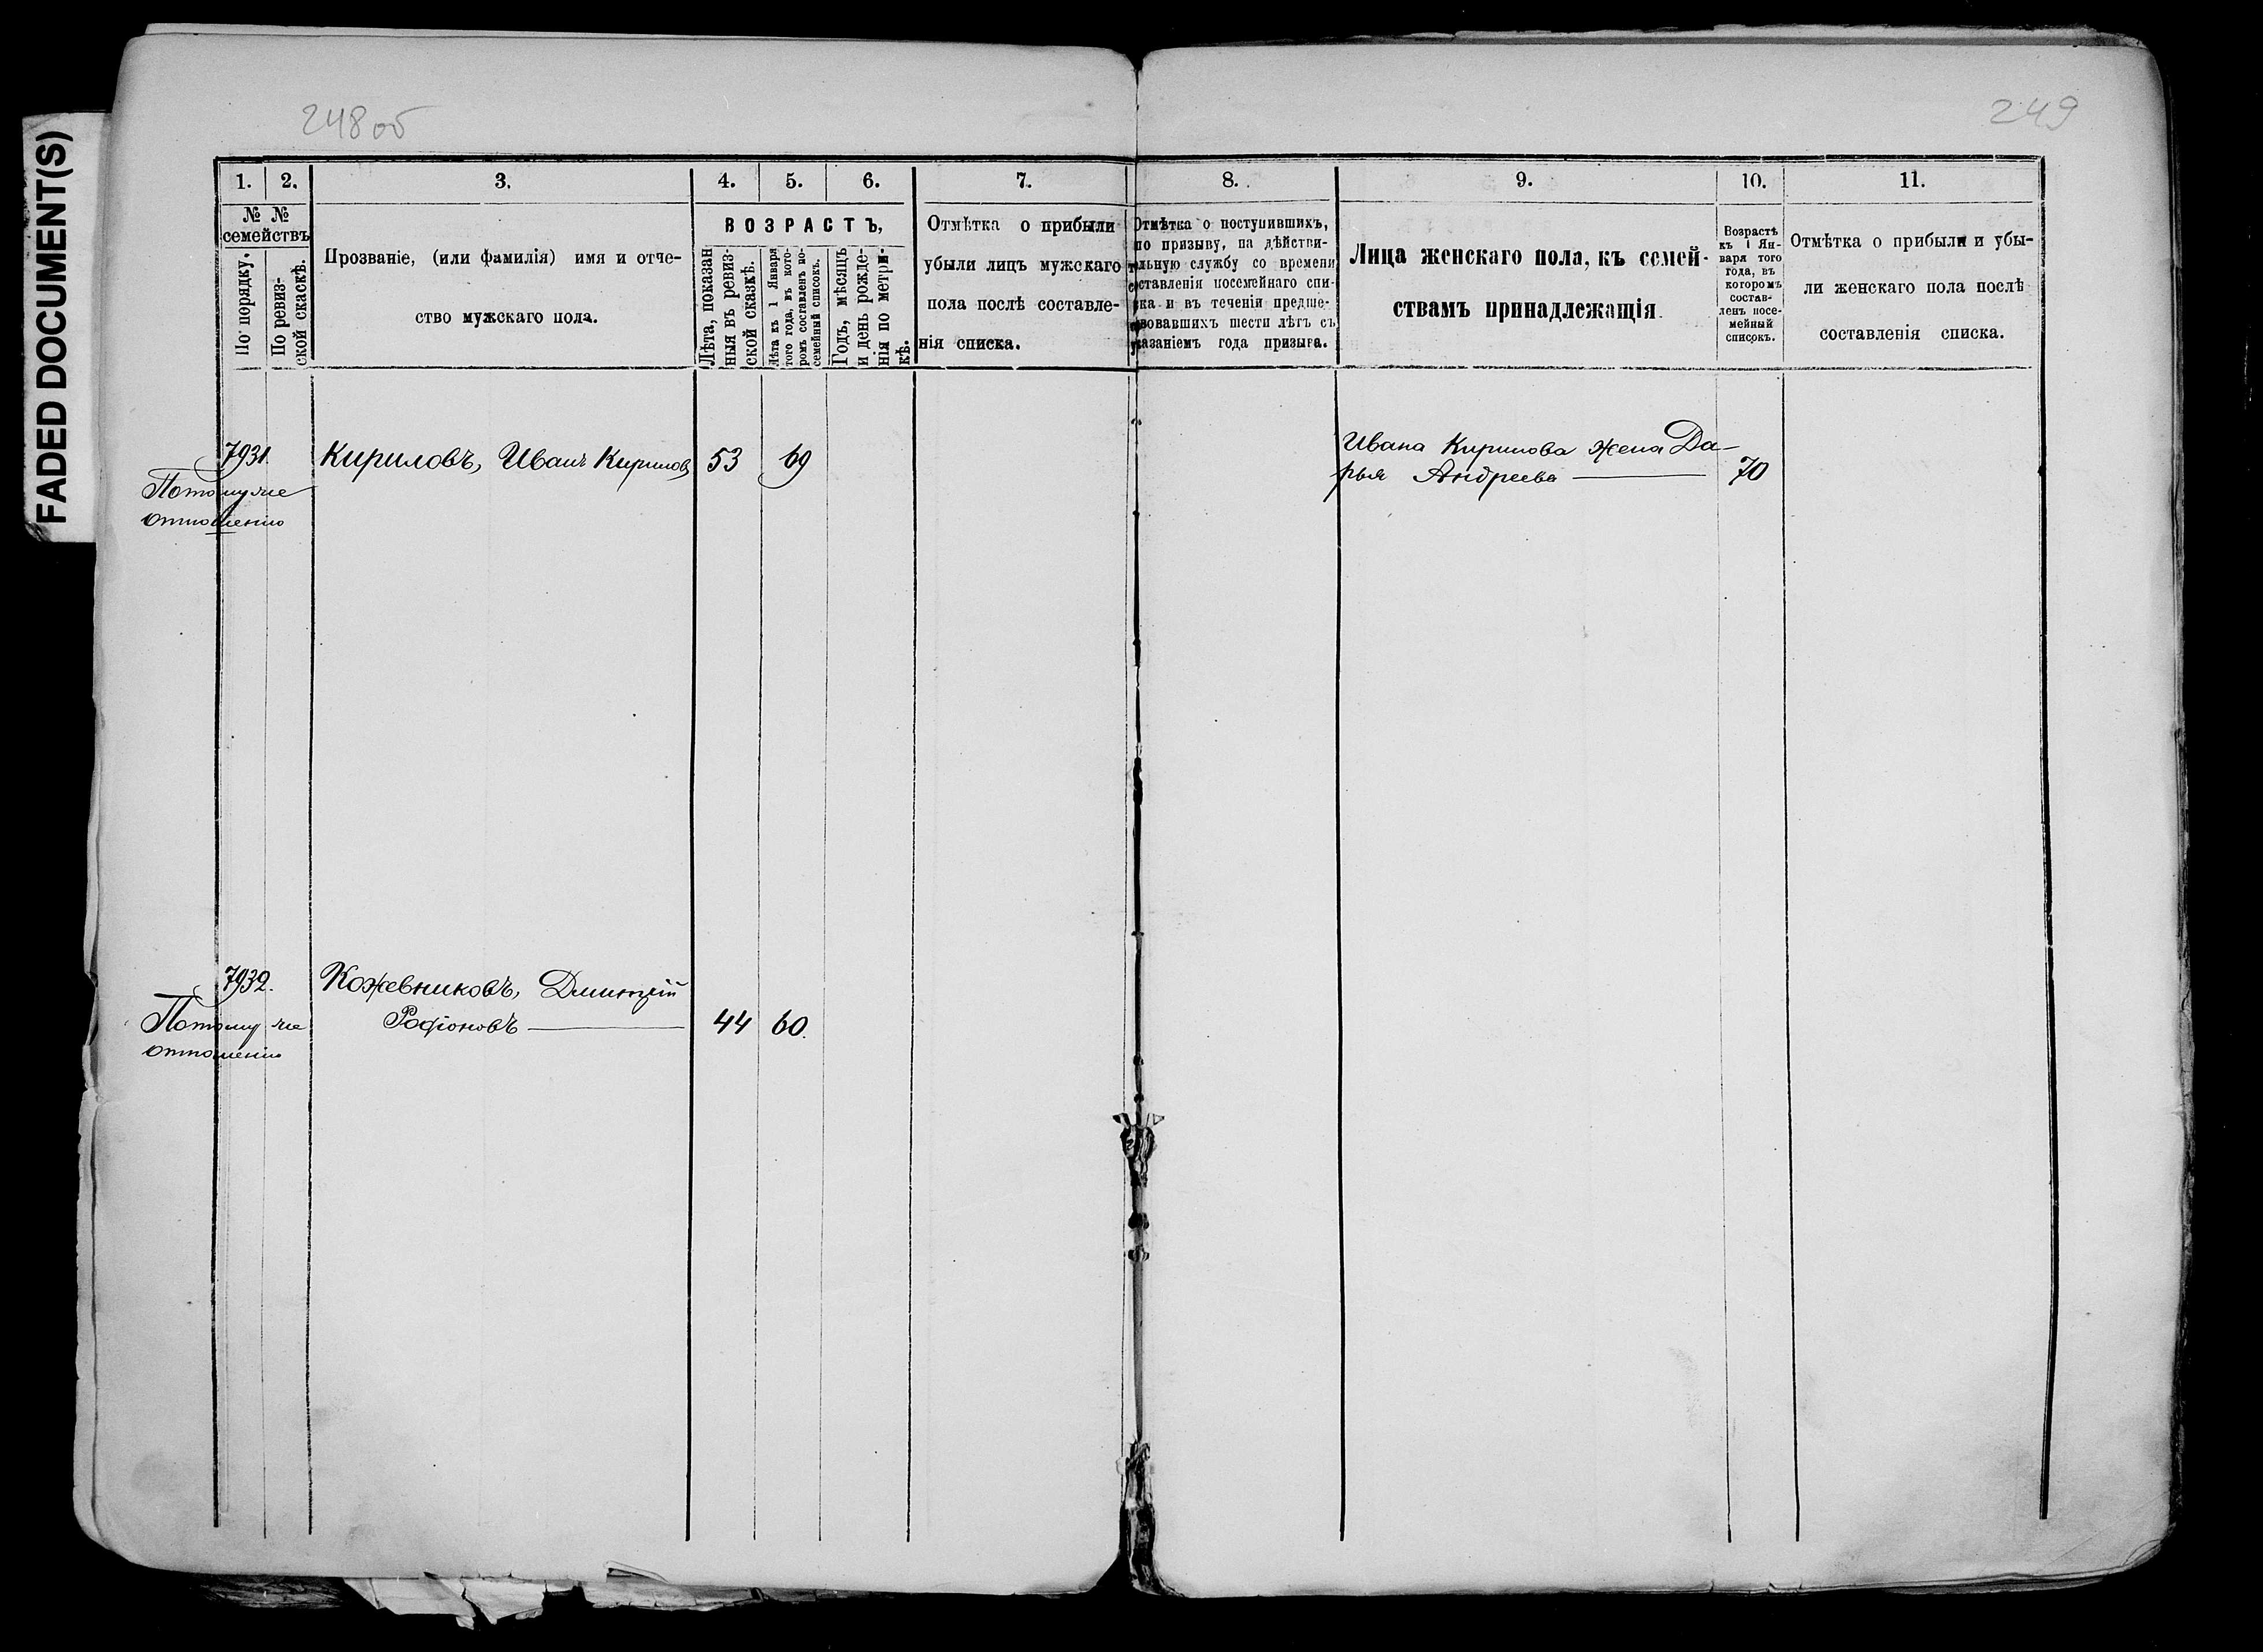 FADED DOCUMENT(S)
248 об
249
1. 2. 3. 4. 5. 6. 7. 8. 9. 10. 11.
№ №
семействъ
По порядку.
По ревиз-
ской скаскѣ.
Прозваніе, (или фамилія) имя и отче-
ство мужскаго пола.
ВОЗРАСТЪ,
Лѣта, показан
ныя въ ревиз-
ской сказкѣ.
Лѣта къ 1 Января
того года, въ кото-
ромъ составленъ по-
семейный списокъ.
Годъ, мѣсяцъ
и день рожде-
нія по метри-
кѣ.
Отмѣтка о прибыли
убыли лицъ мужскаго
пола послѣ составле-
нія списка.
Отмѣтка о поступившихъ,
по призыву, на дѣйстви-
тельную службу со времени
составленія посемейнаго спи-
ска и въ теченіи предше-
ствовавшихъ шести лѣтъ съ
указаніемъ года призыва.
Лица женскаго пола, къ семей-
ствамъ принадлежащія.
Возрастъ
къ 1 Ян-
варя того
года, въ
которомъ
состав-
ленъ посе-
мейный
списокъ.
Отмѣтка о прибыли и убы-
ли женскаго пола послѣ
составленія списка.
7931.
Потому же
отношенію
Кириловъ, Иванъ Кириловъ 53 69
Ивана Кирилова жена Да-
рья Андреева 70
7932.
Потому же
отношенію
Кожевниковъ, Дмитрій
Родіоновъ 44 60.